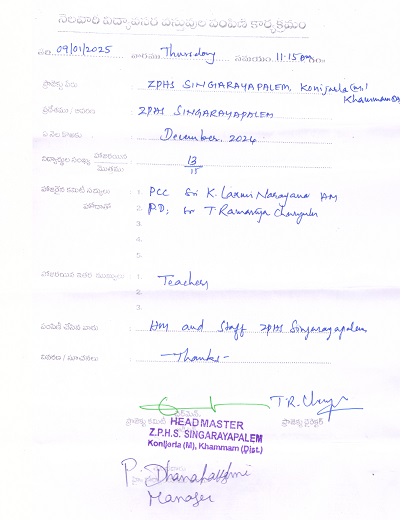 నెలవారి విద్యావసర వస్తువుల పంపిణి కార్యక్రమం
తేది. 09/01/2025 వారము Thursday సమయం 11.15am
ప్రాజెక్టు పేరు : ZPHS SINGARAYAPALEM, Konijarla (m)
Khammam (D)
ప్రదేశము / : ZPHS SINGARAYAPALEM
ఏ నెల కొరకు : December, 2024
విద్యార్థుల సంఖ్య హాజరయిన / మొత్తము : 13/15
హాజరైన కమిటీ సభ్యులు : 1. PCC Sri K. Laxmi Narayana HM
హోదా 2. PD, Sr T Ramaraja
3.
4.
5.
హాజరయిన ఇతర సభ్యులు : 1. Teachers
2.
3.
పంపిణి చేసిన వారు : HM and Staff ZPHS Singarayapalem
వివరణ / సూచనలు : - Thanks -
T.R.
ప్రాజెక్టు కమిటీ ఛైర్మన్ ప్రాజెక్టు డైరెక్టర్
HEADMASTER
Z.P.H.S. SINGARAYAPALEM
Konijarla (M), Khammam (Dist.)
P. Dhanalaxmi
Manager